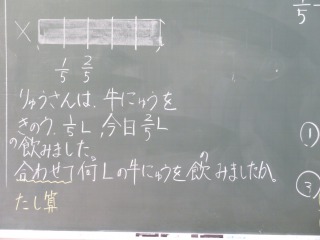 ×
1/5 2/5
りゅうさんは、牛にゅうを
きのう、1/5L、今日2/5L
飲みました。
合わせて何Lの牛にゅうを飲みましたか。
たし算
1/5
①
③